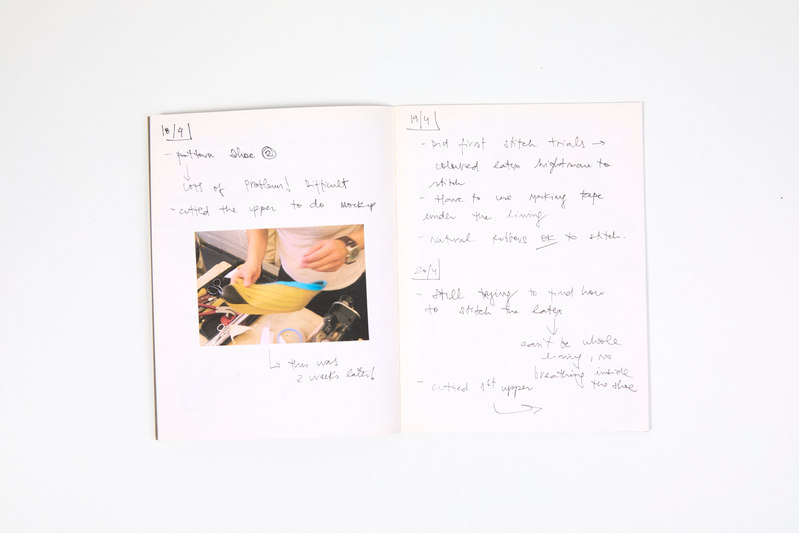 18/4
- pattern shoe 2
Lots of problems! Difficult
- cutted the upper to do mockup
this was
2 weeks later!
19/4
- Did first stitch trials →
coloured latex nightmare to
stitch
- Have to use masking tape
under the lining
- Natural rubbers OK to stitch.
20/4
- Still trying to find how
to stitch the latex
can't be whole
lining, no
breathing inside
the shoe
- cutted 1st upper